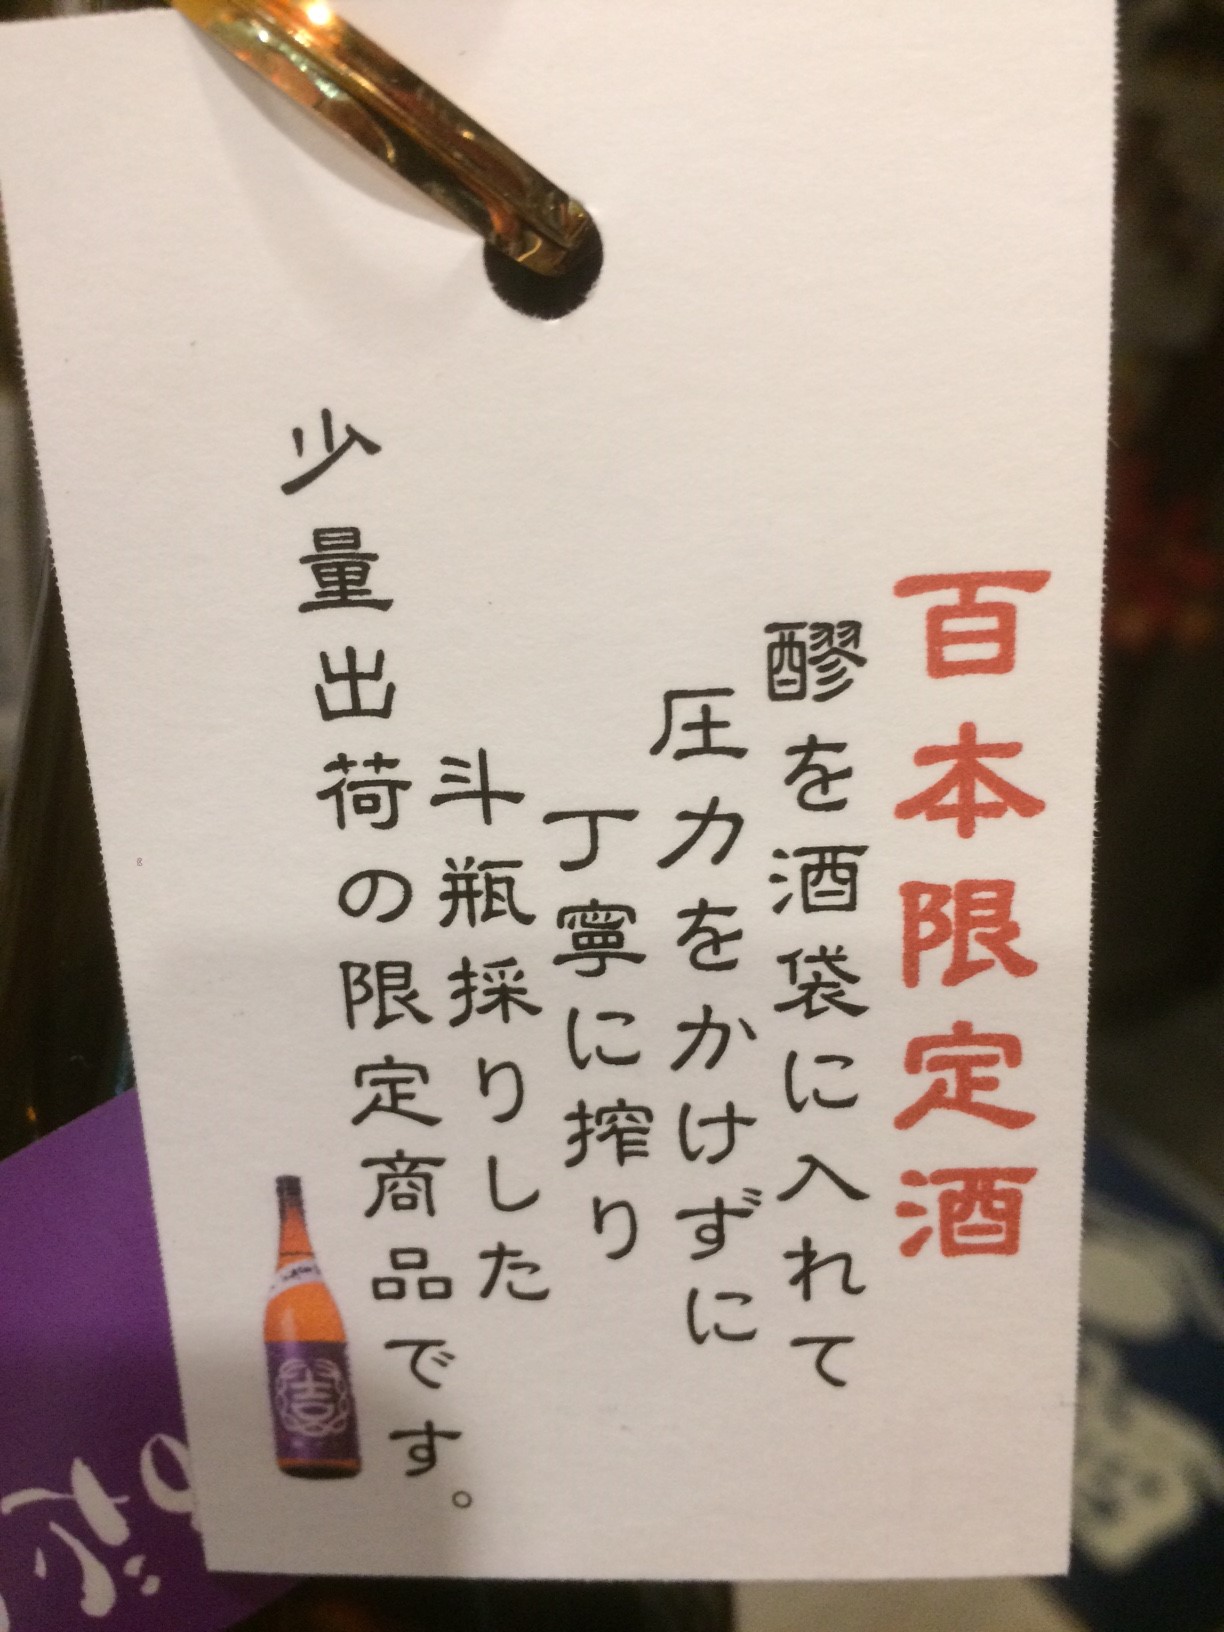 百本限定酒
醪を酒袋に入れて
圧力をかけずに
丁寧に搾り
斗瓶採りした
少量出荷の限定商品です。